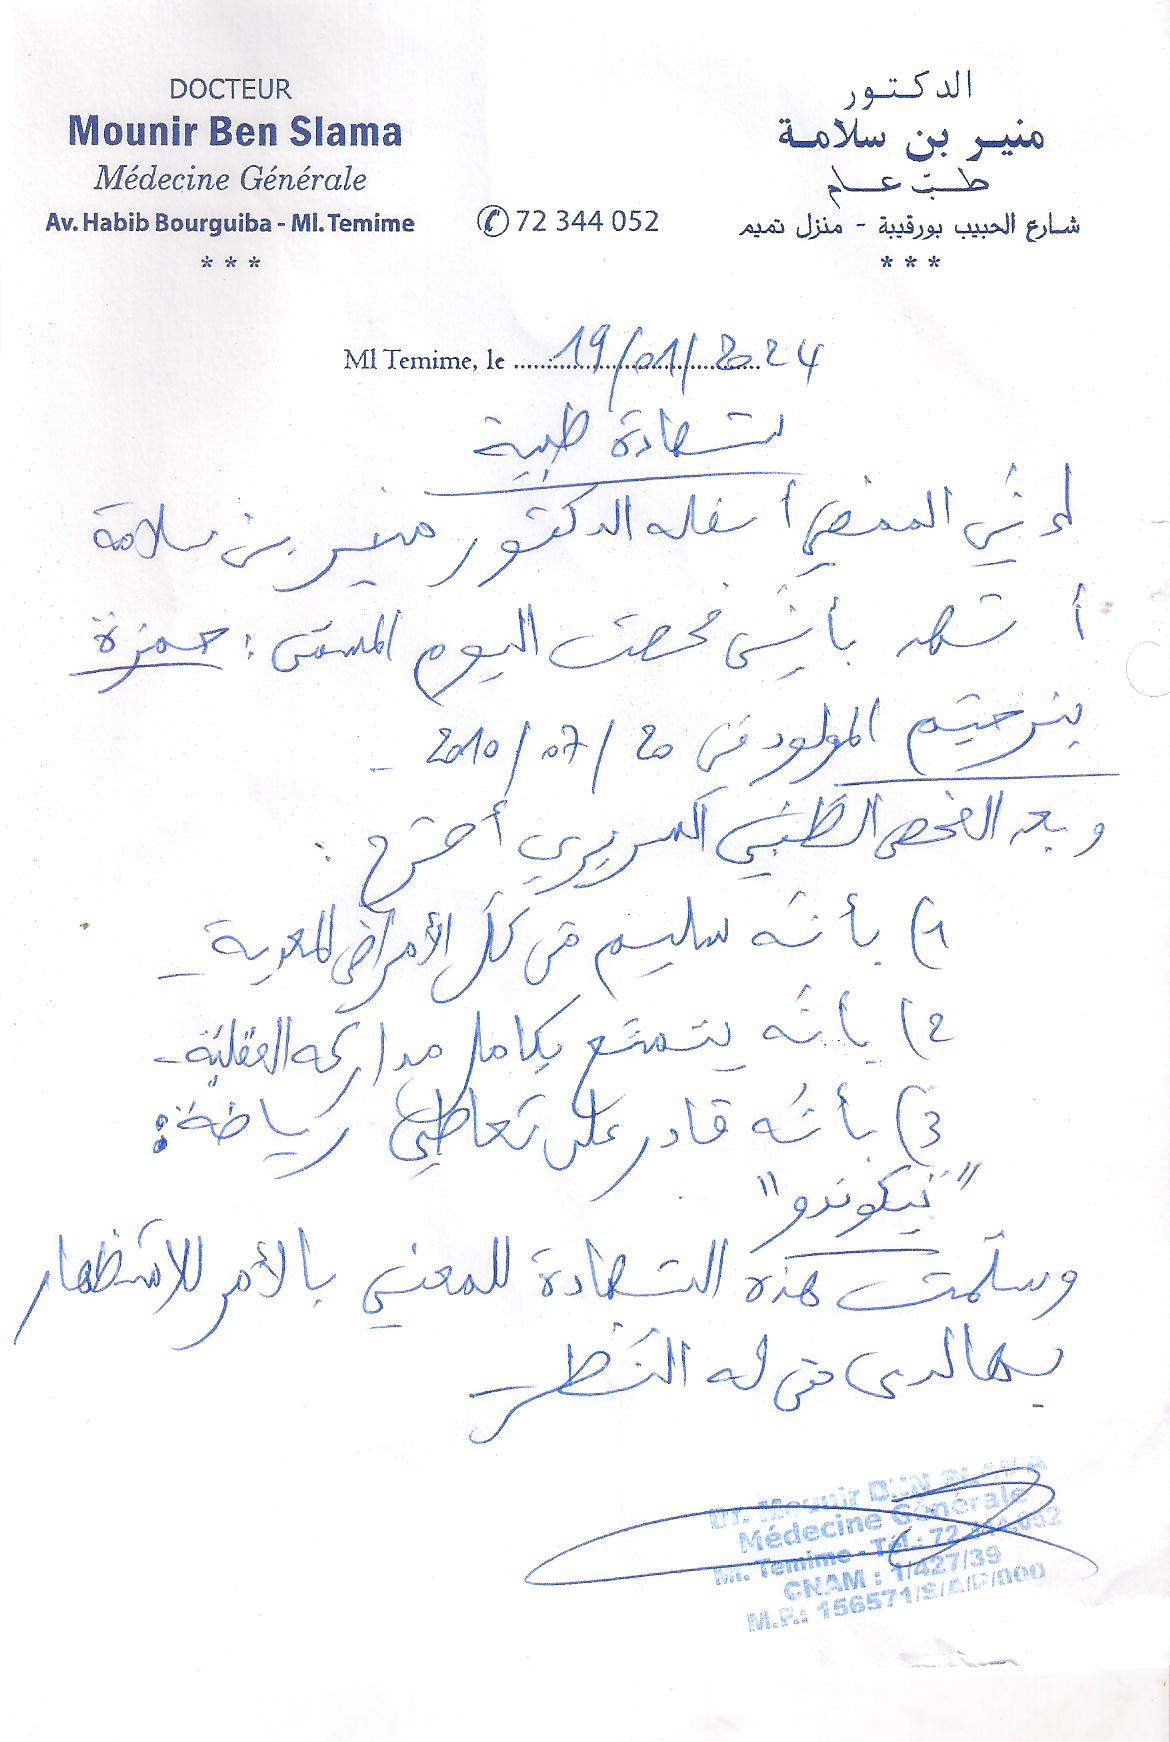 DOCTEUR
Mounir Ben Slama
Médecine Générale
Av. Habib Bourguiba - Ml. Temime
72 344 052
الدكتور
منير بن سلامة
طب عام
شارع الحبيب بورقيبة - منزل تميم
* * *
* * *
Ml Temime, le 19/01/2024
شهادة طبية
إني الممضي أسفله الدكتور منير بن سلامة
أشهد بأنني فحصت اليوم المسمى : حمزة
المولود في 20/07/2010 -
وبعد الفحص الطبي السريري أصرح :
1) بأنه سليم من كل الأمراض المعدية -
2) بأنه يتمتع بكامل مداركه العقلية -
3) بأنه قادر على تعاطي رياضة :
وسلمت هذه الشهادة للمعني بالأمر للاستظهار
بها لدى من له النظر -
Dr. Mounir BEN SLAMA
Médecine Générale
Ml. Temime - Tél.: 72 344 052
CNAM : 1/427/39
M.F.: 156571/S/A/P/000